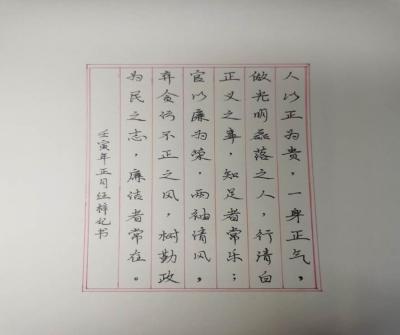 人以正为贵，一身正气，
做光明磊落之人，行清白
正义之事，知足者常乐；
官以廉为荣，两袖清风，
弃贪污不正之风，树勤政
为民之志，廉洁者常在。
壬寅年正月经梓记书